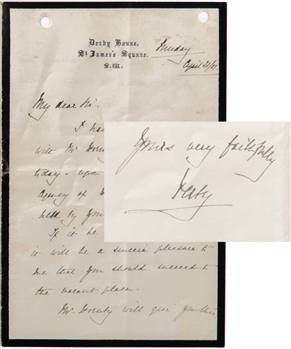 Derby House,
St. James's Square.
S.W.
Monday
April 21/
My dear Sir.
I ha
will Mr.
today - upon
Agency of
held by your
If it be
it will be a sincere pleasure to
me that you should succeed to
the vacant place.
Mr. will give you this
Yours very faithfully
Derby